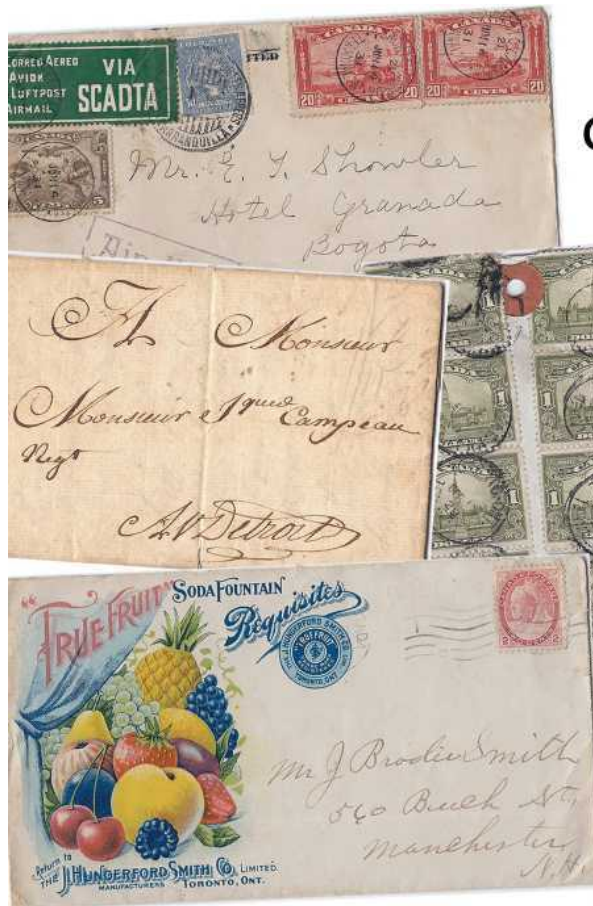 CORREO AEREO
AVION
LUFTPOST
AIRMAIL
VIA
SCADTA
COLOMBIA
BARRANQUILLA
CANADA
20 CENTS 20
CANADA
20 CENTS 20
5 5
Mr. E. T. Showler
Hotel Granada
Bogota
A Monsieur
Monsieur Jques Campeau
Negt
Au Detroit
1
1
1
1
1
1
"TRUE FRUIT"
SODA FOUNTAIN
Requisites
THE J. HUNGERFORD SMITH CO. LIMITED
TRUE FRUIT
TORONTO, ONT.
2 2
Mr J Brodie Smith
560 Beech St,
Manchester
N.H.
Return to
THE J. HUNGERFORD SMITH CO. LIMITED.
MANUFACTURERS TORONTO, ONT.